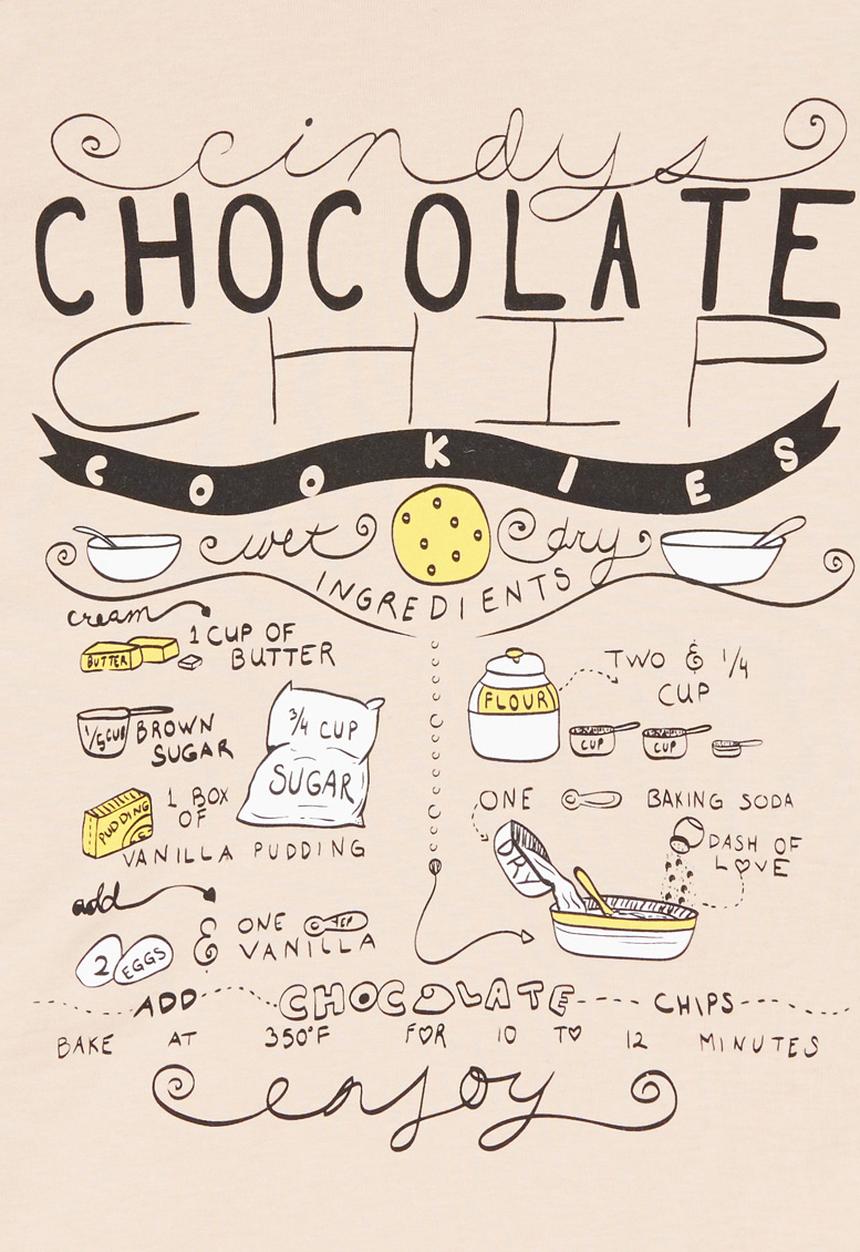 cindys
CHOCOLATE
CHIP
COOKIES
wet dry
INGREDIENTS
cream
BUTTER
1 CUP OF
BUTTER
1/5 CUP
BROWN
SUGAR
3/4 CUP
SUGAR
PUDDING
1 BOX
OF
VANILLA PUDDING
add
2 EGGS
& ONE
VANILLA
FLOUR
TWO & 1/4
CUP
CUP CUP
ONE BAKING SODA
DRY
DASH OF
LOVE
ADD CHOCOLATE CHIPS
BAKE AT 350°F FOR 10 TO 12 MINUTES
enjoy